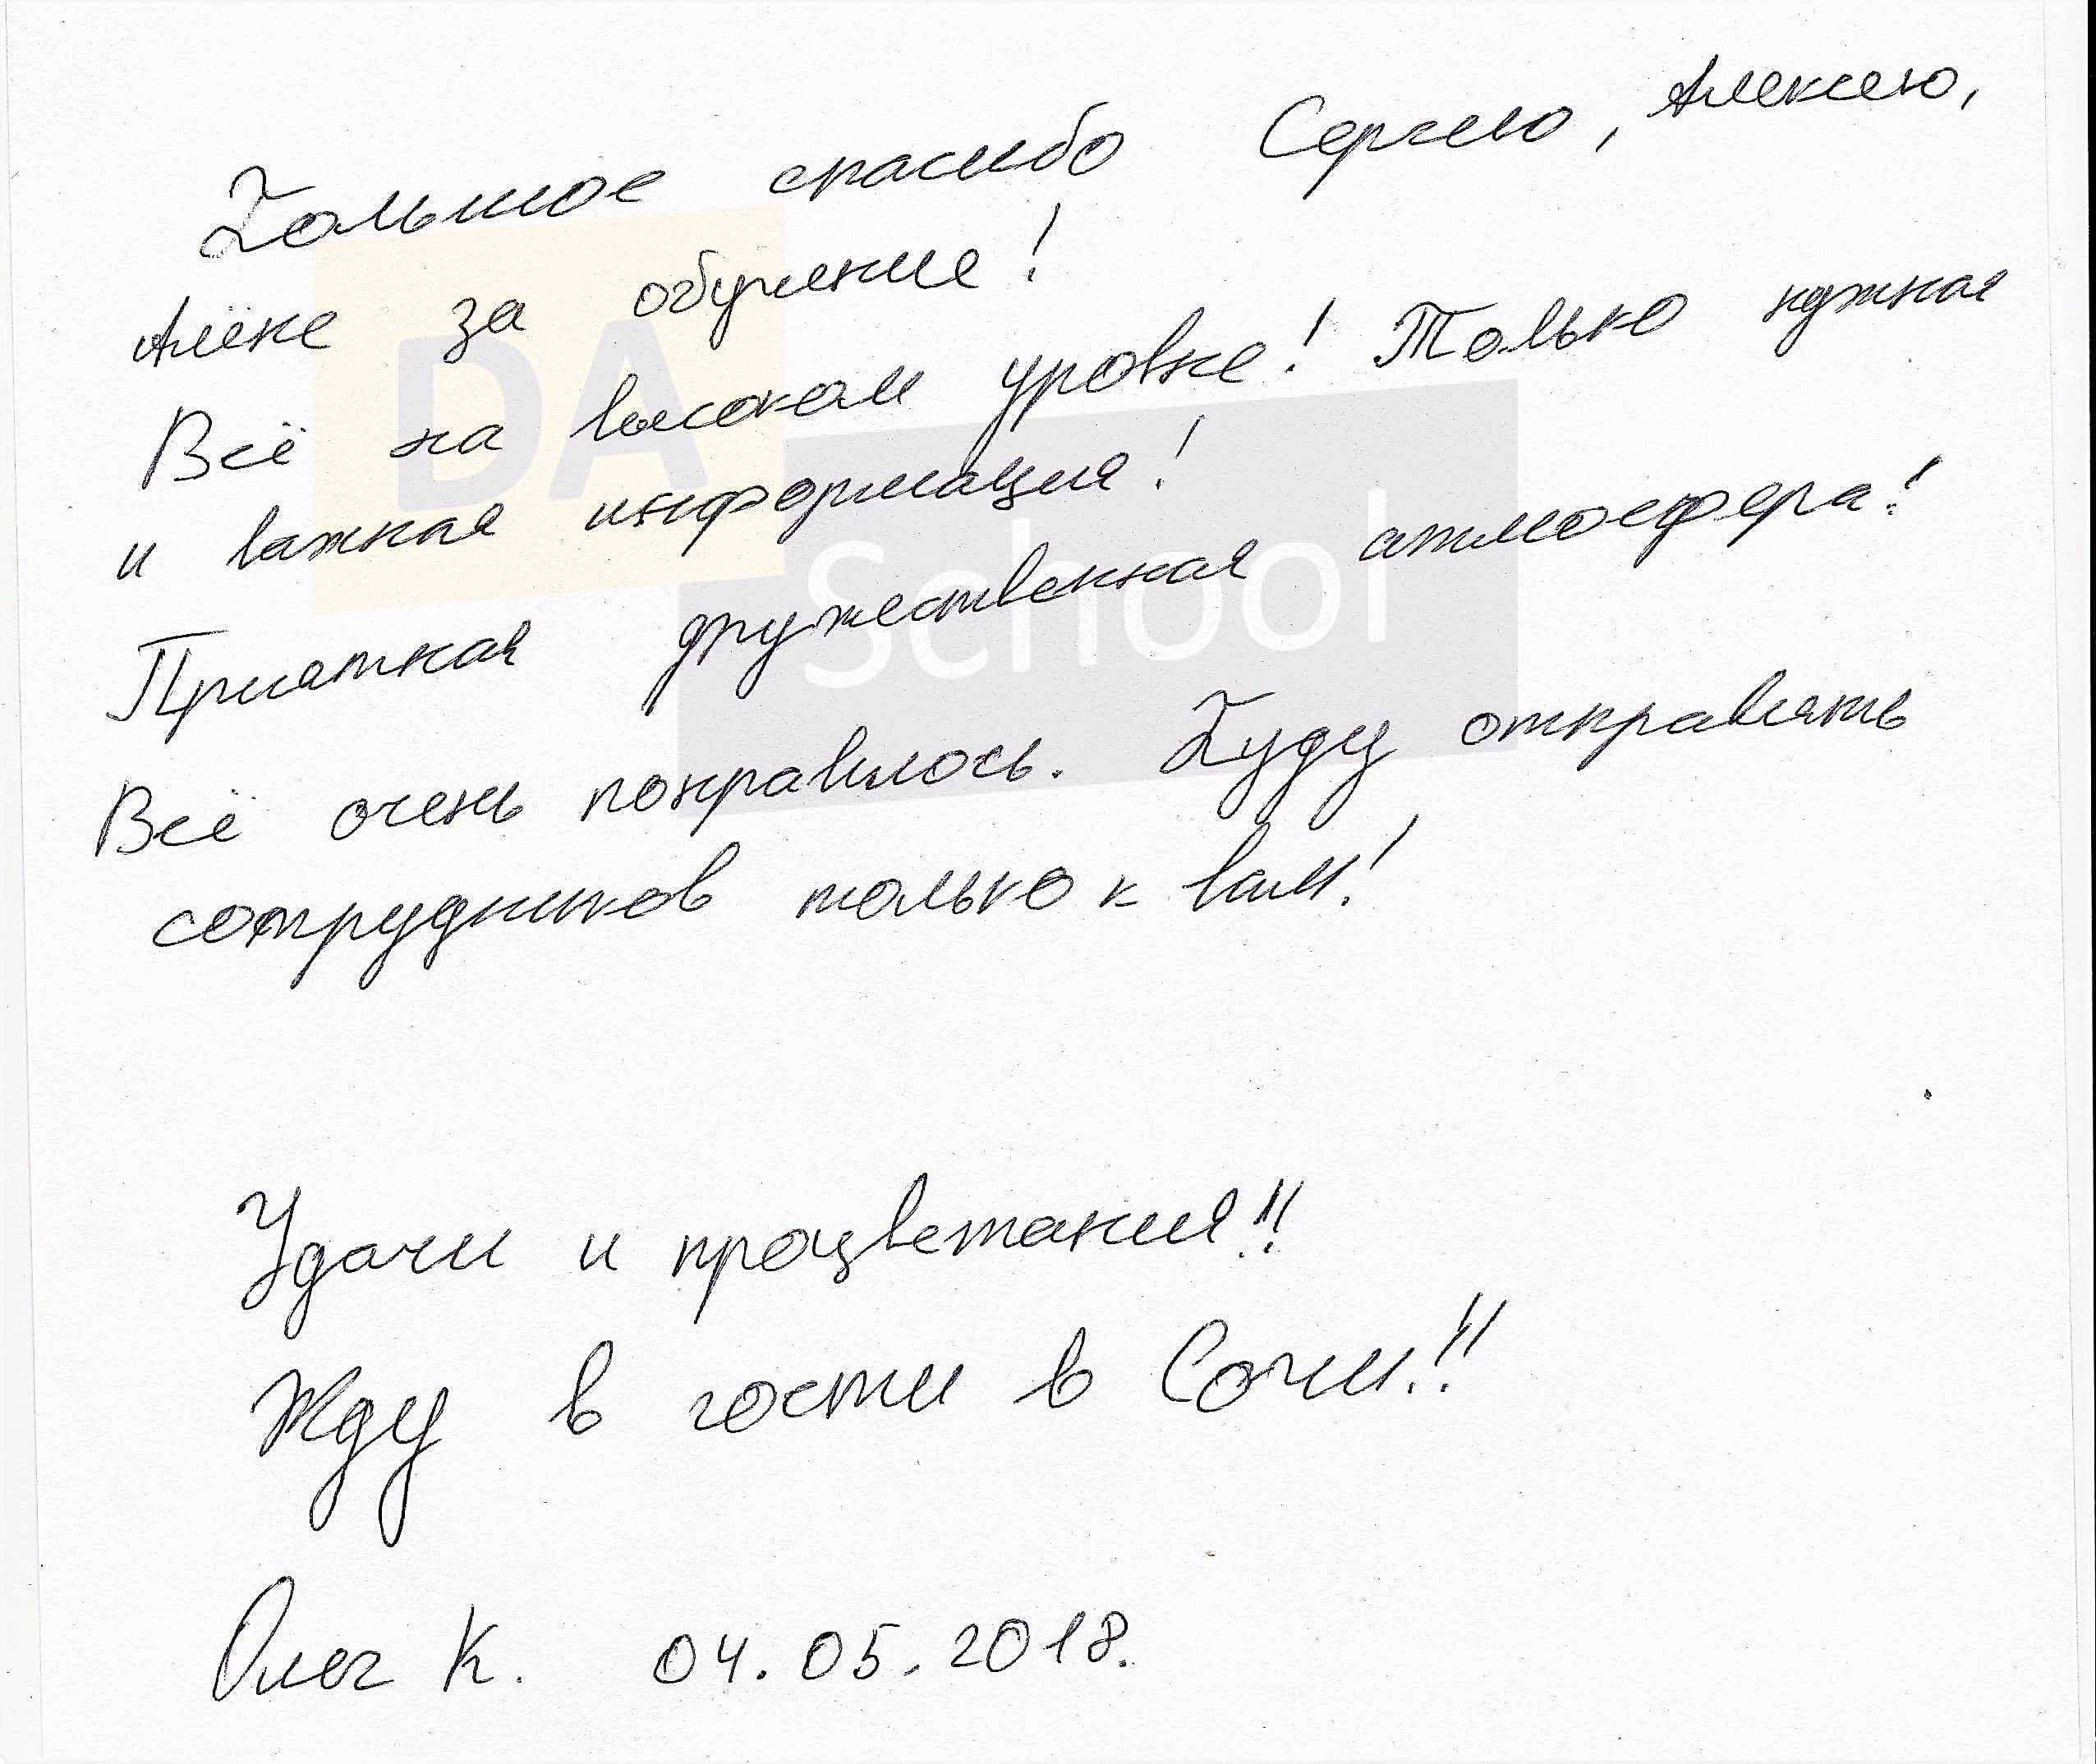 Большое спасибо Сергею, Алексею,
Алёне за обучение!
Всё на высоком уровне! Только нужная
и важная информация!
Приятная дружественная атмосфера!
Всё очень понравилось. Буду отправлять
сотрудников только к вам!
Удачи и процветания!!
Жду в гости в Сочи!!
Олег К. 04.05.2018.
DA
School